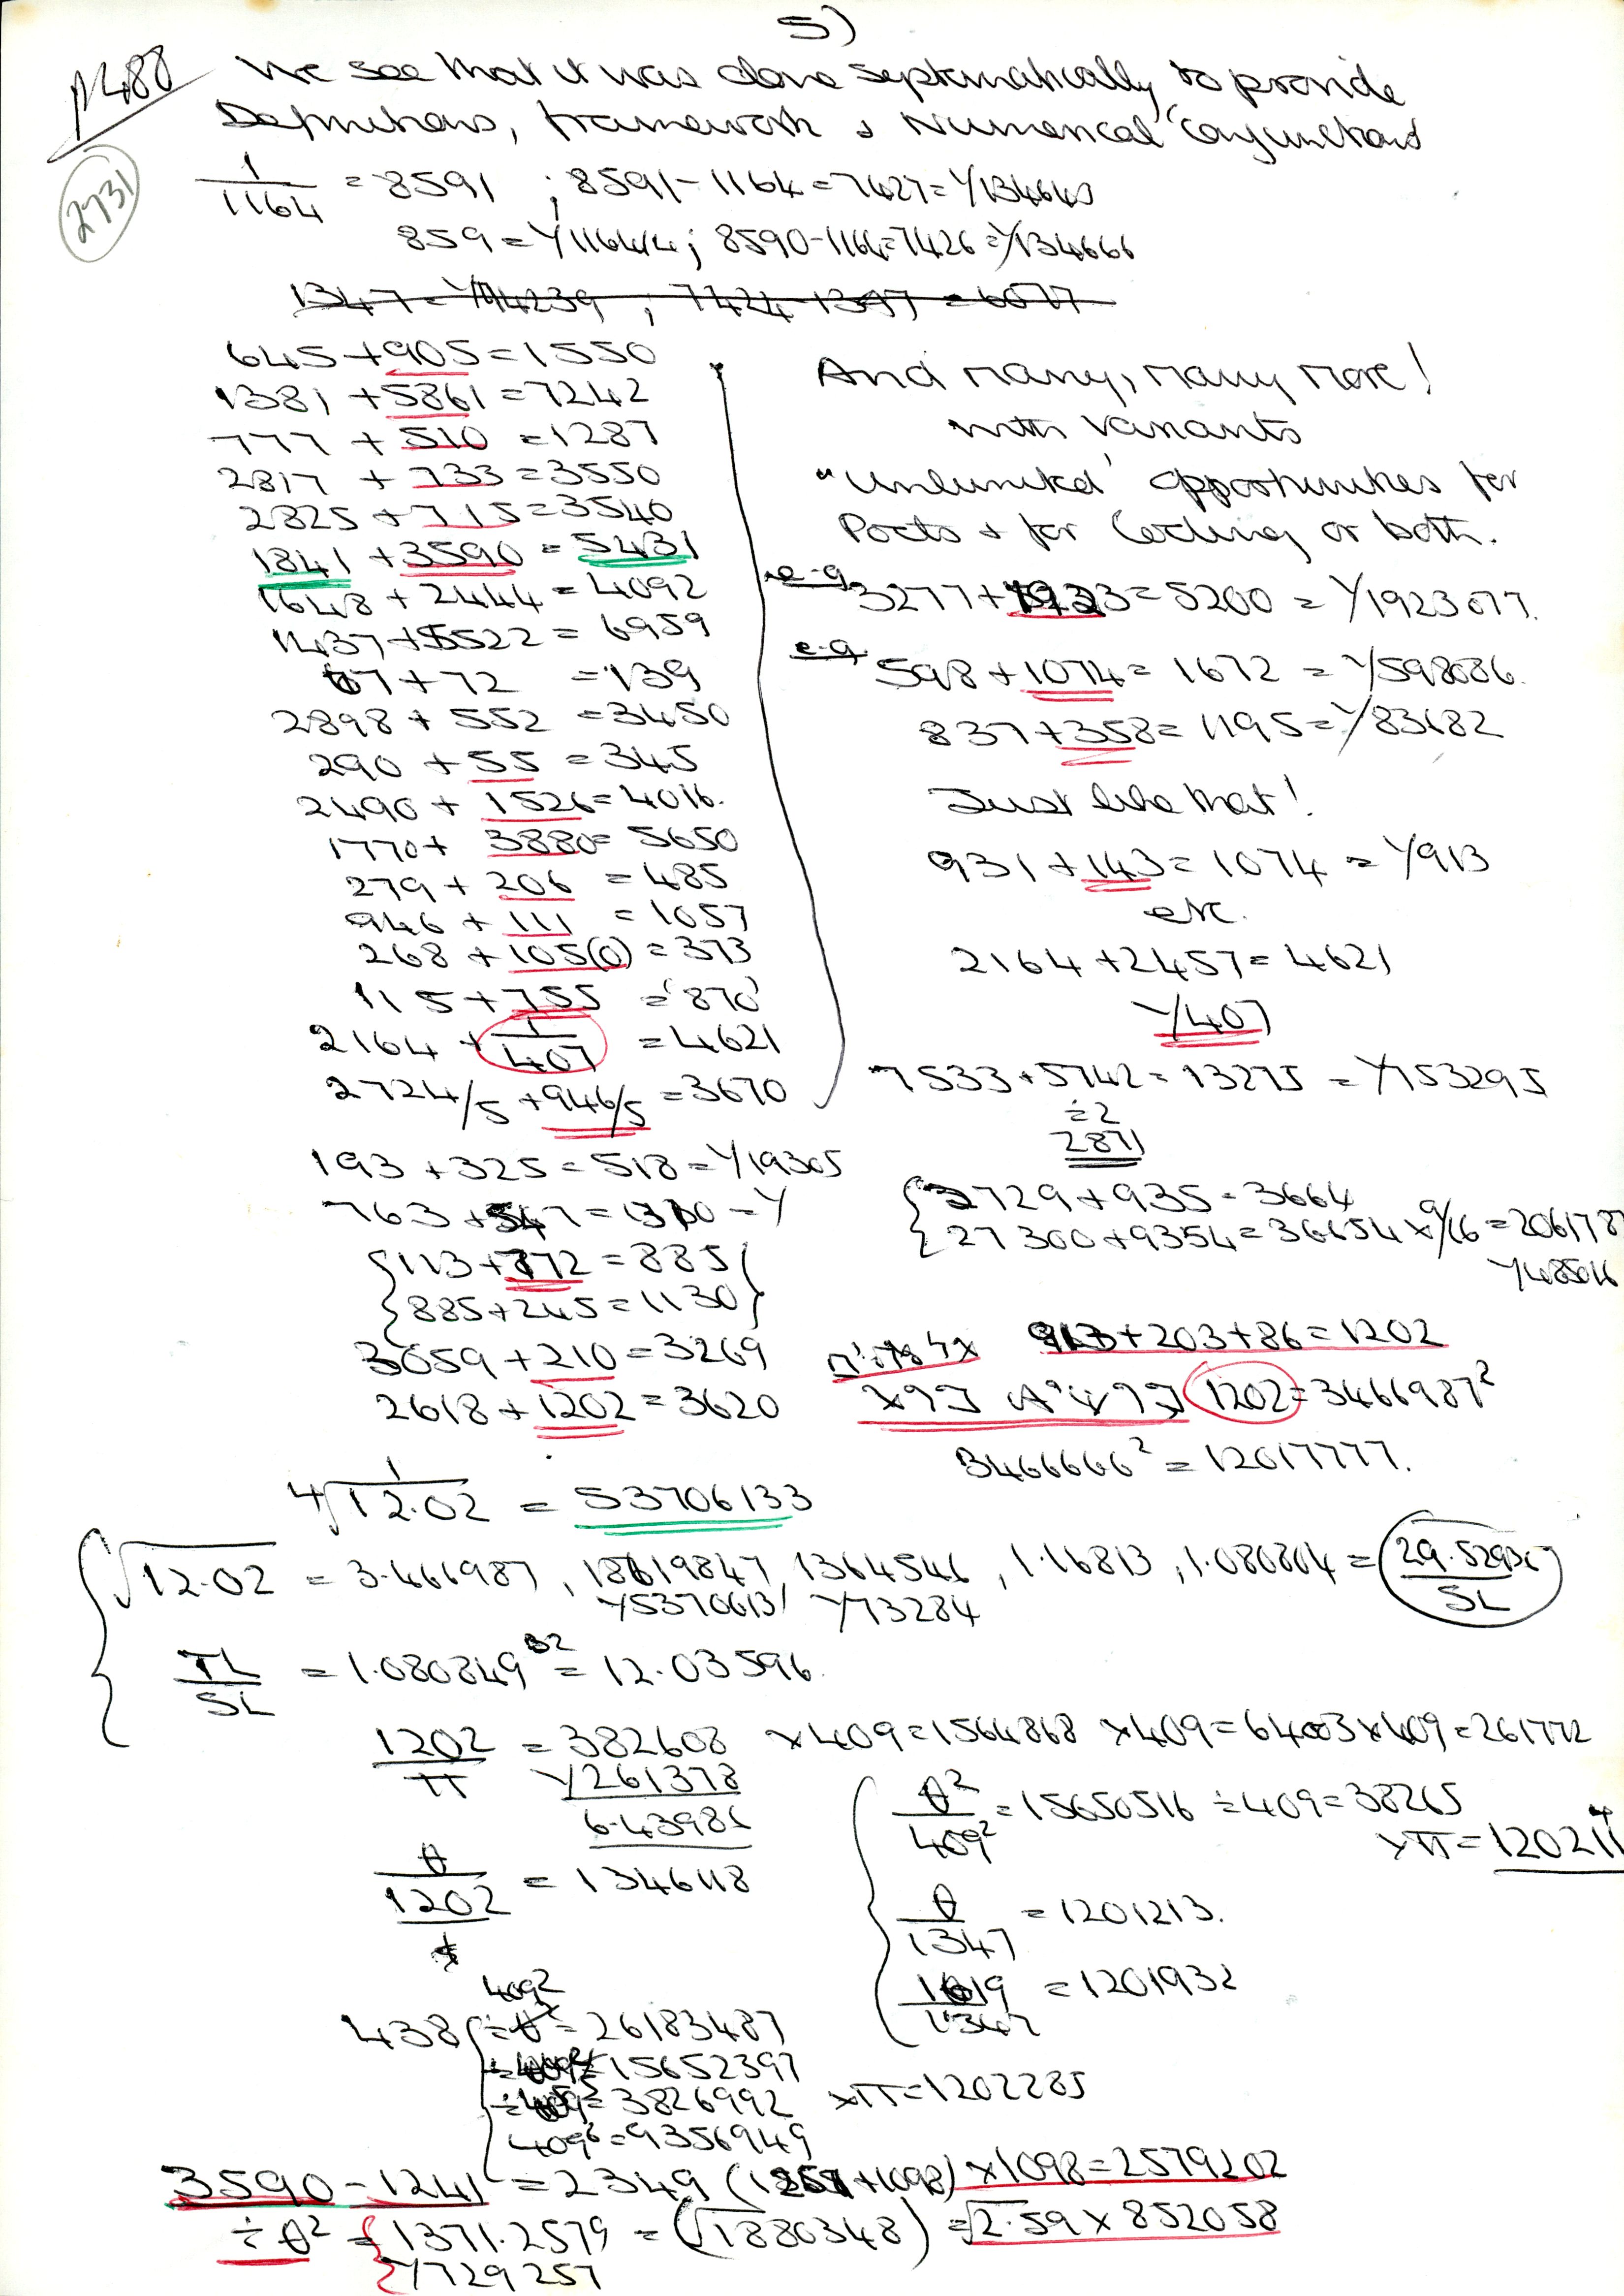 5)
p488
2731
We see that it was done systematically to provide
Definitions, framework & Numerical Conjunctions
1/1164 = 8591 ; 8591-1164=7427=1/134643
859=1/116414; 8590-1164=7426=1/134666
645+905=1550
1381+5861=7242
777+510=1287
2817+733=3550
2825+715=3540
1841+3590=5431
1648+2444=4092
1437+5522=6959
67+72=139
2898+552=3450
290+55=345
2490+1526=4016.
1770+3880=5650
279+206=485
946+111=1057
268+105(0)=373
115+755='870'
2164+1/407=4621
2724/5+946/5=3670
193+325=518=1/19305
763+547=1310=1/
{113+772=885}
{885+245=1130}
3059+210=3269
2618+1202=3620
And many, many more!
with variants
"Unlimited' opportunities for
Poets & for Coding or both.
e-g 3277+1923=5200=1/1923077.
e-g 598+1074=1672=1/598086.
837+358=1195=1/83682
Just like that!
931+143=1074=1/931
etc.
2164+2457=4621
1/407
7533+5742=13275=1/753295
÷2
2871
{2729+935=3664
{27300+9354=36654×9/16=206178
1/485016
913+203+86=1202
1202=3466987²
3466666²=12017777.
4√1/12.02 = 53706133
√12.02 = 3.466987, 18619847, 1364546, 1.16813, 1.080804 = 29.5293/SL
1/5370613 1/73284
TL/SL = 1.080849³²=12.03596.
1202/π = 382608 ×409=1564868 ×409=64003×409=261772
1/261378
6.43981
θ/1202 = 1346118
θ²/409² = 15650516 ÷409=38265
×π=120214
θ/1347 = 1201213.
1619/1347 = 1201932
409²
438 ÷θ²=26183487
=15652397
=3826992 ×π=1202285
409⁶=9356949
3590-1241=2349 (1251+1098)×1098=2579202
÷θ² = 1371.2579=(√1880348)=√2.59×852058
1/729257